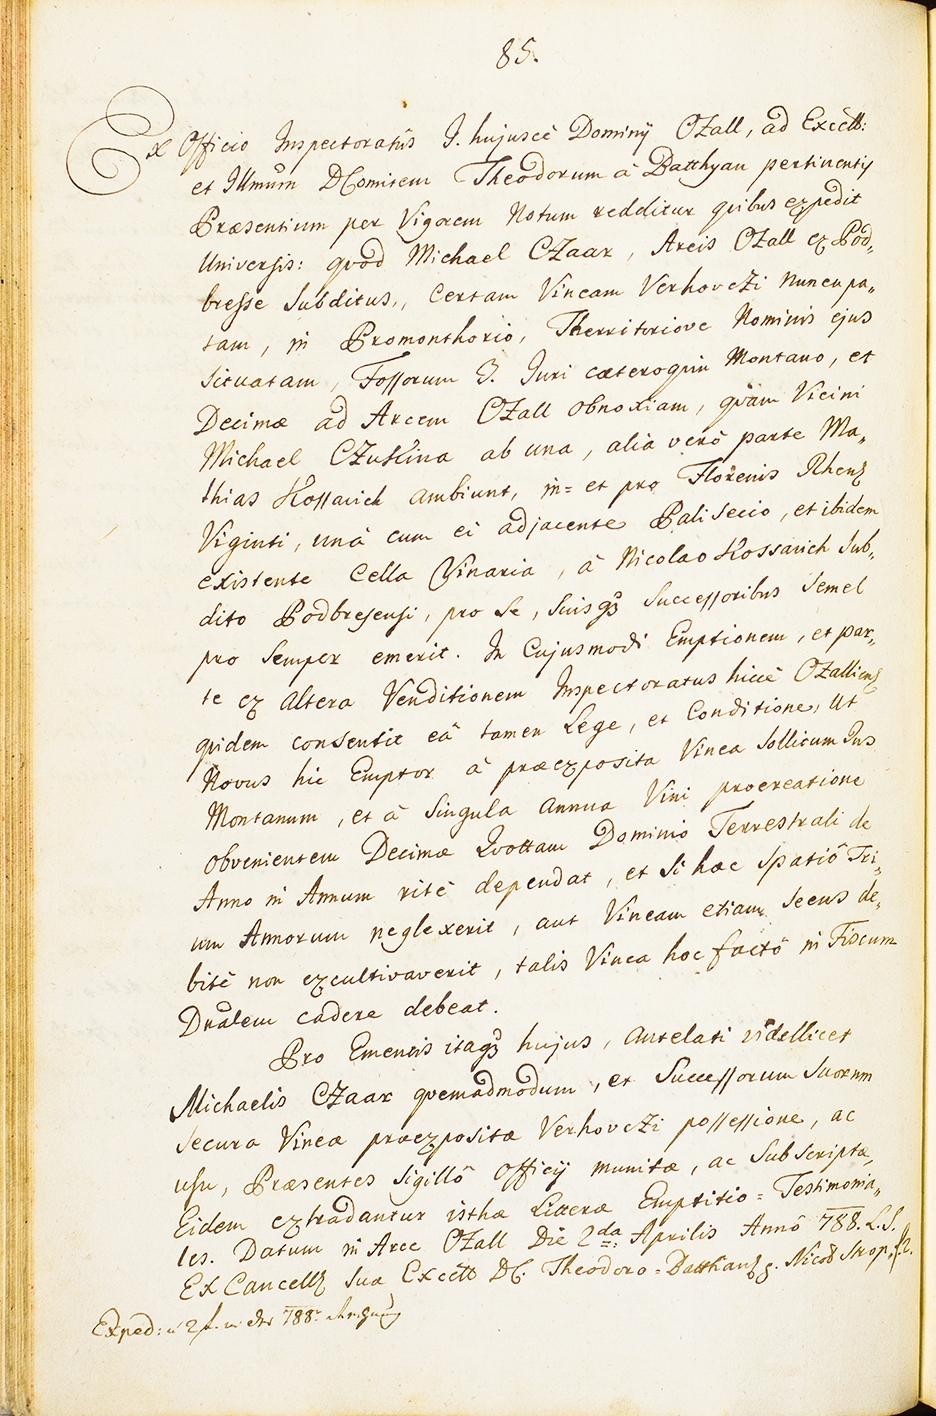 85.
Ex Officio Inspectoratûs I. hujusce Dominÿ OZall, ad Excētt:
et Illmūm D Comitem Theodorum à Batthyan pertinentÿ
Præsentium per Vigorem Notum redditur qvibus expedit
Universis: qvod Michael CZaar, Arcis OZall ex Pod„
bresse Subditus,, Certam Vineam VerhovcZi nuncupa„
tam, in Promonthorio, Therritoriove Nominis ejus
Situatam, Fossorum 3. Juri cæteroqvin Montano, et
Decimæ ad Arcem OZall obnoxiam, qvam Vicini
Michael CZuKina ab una, alia verò parte Ma„
thias Kossarich ambiunt, in= et pro Florenis Rhenȝ
Viginti, unà cum ei adjacente Palisecio, et ibidem
existente Cella Vinaria, à Nicolao Kossarich Sub„
dito Podbresensi, pro Se, Suisqȝ Successoribus Semel
pro Semper emerit. In Cujusmodi Emptionem, et par„
te ex altera Venditionem Inspectoratus hiccè OZalliensȝ
qvidem consentit eâ tamen Lege, et Conditione, Ut
Novus hic Emptor à præexposita Vinea Sollitum Jus
Montanum, et à Singula annua Vini procreatione
obvenientem Decimæ Qvottam Dominio Terrestrali de
Anno in Annum ritè dependat, et Si hæc Spatiô Tri„
um Annorum neglexerit, aut Vineam etiam Secus de„
bitè non excultivaverit, talis Vinea hoc factô in Fiscum
Dnālem cadere debeat.
Pro Emensis itaqȝ hujus, Antelati videllicet
Michaelis CZaar qvemadmodum, et Successorum Suorum
Secura Vineæ præexpositæ VerhovcZi possessione, ac
usu, Præsentes Sigillô Officÿ munitæ, ac Subscriptæ,
Eidem extradantur isthæ Litteræ Emptitio= Testimonia„
les. Datum in Arce OZall Die 2da Aprilis Annô 788. L.S.
Ex Cancellȝ Suæ Excētt DC. Theodoro=Batthanȝ p. Nicol Skop
Exped: 2 788